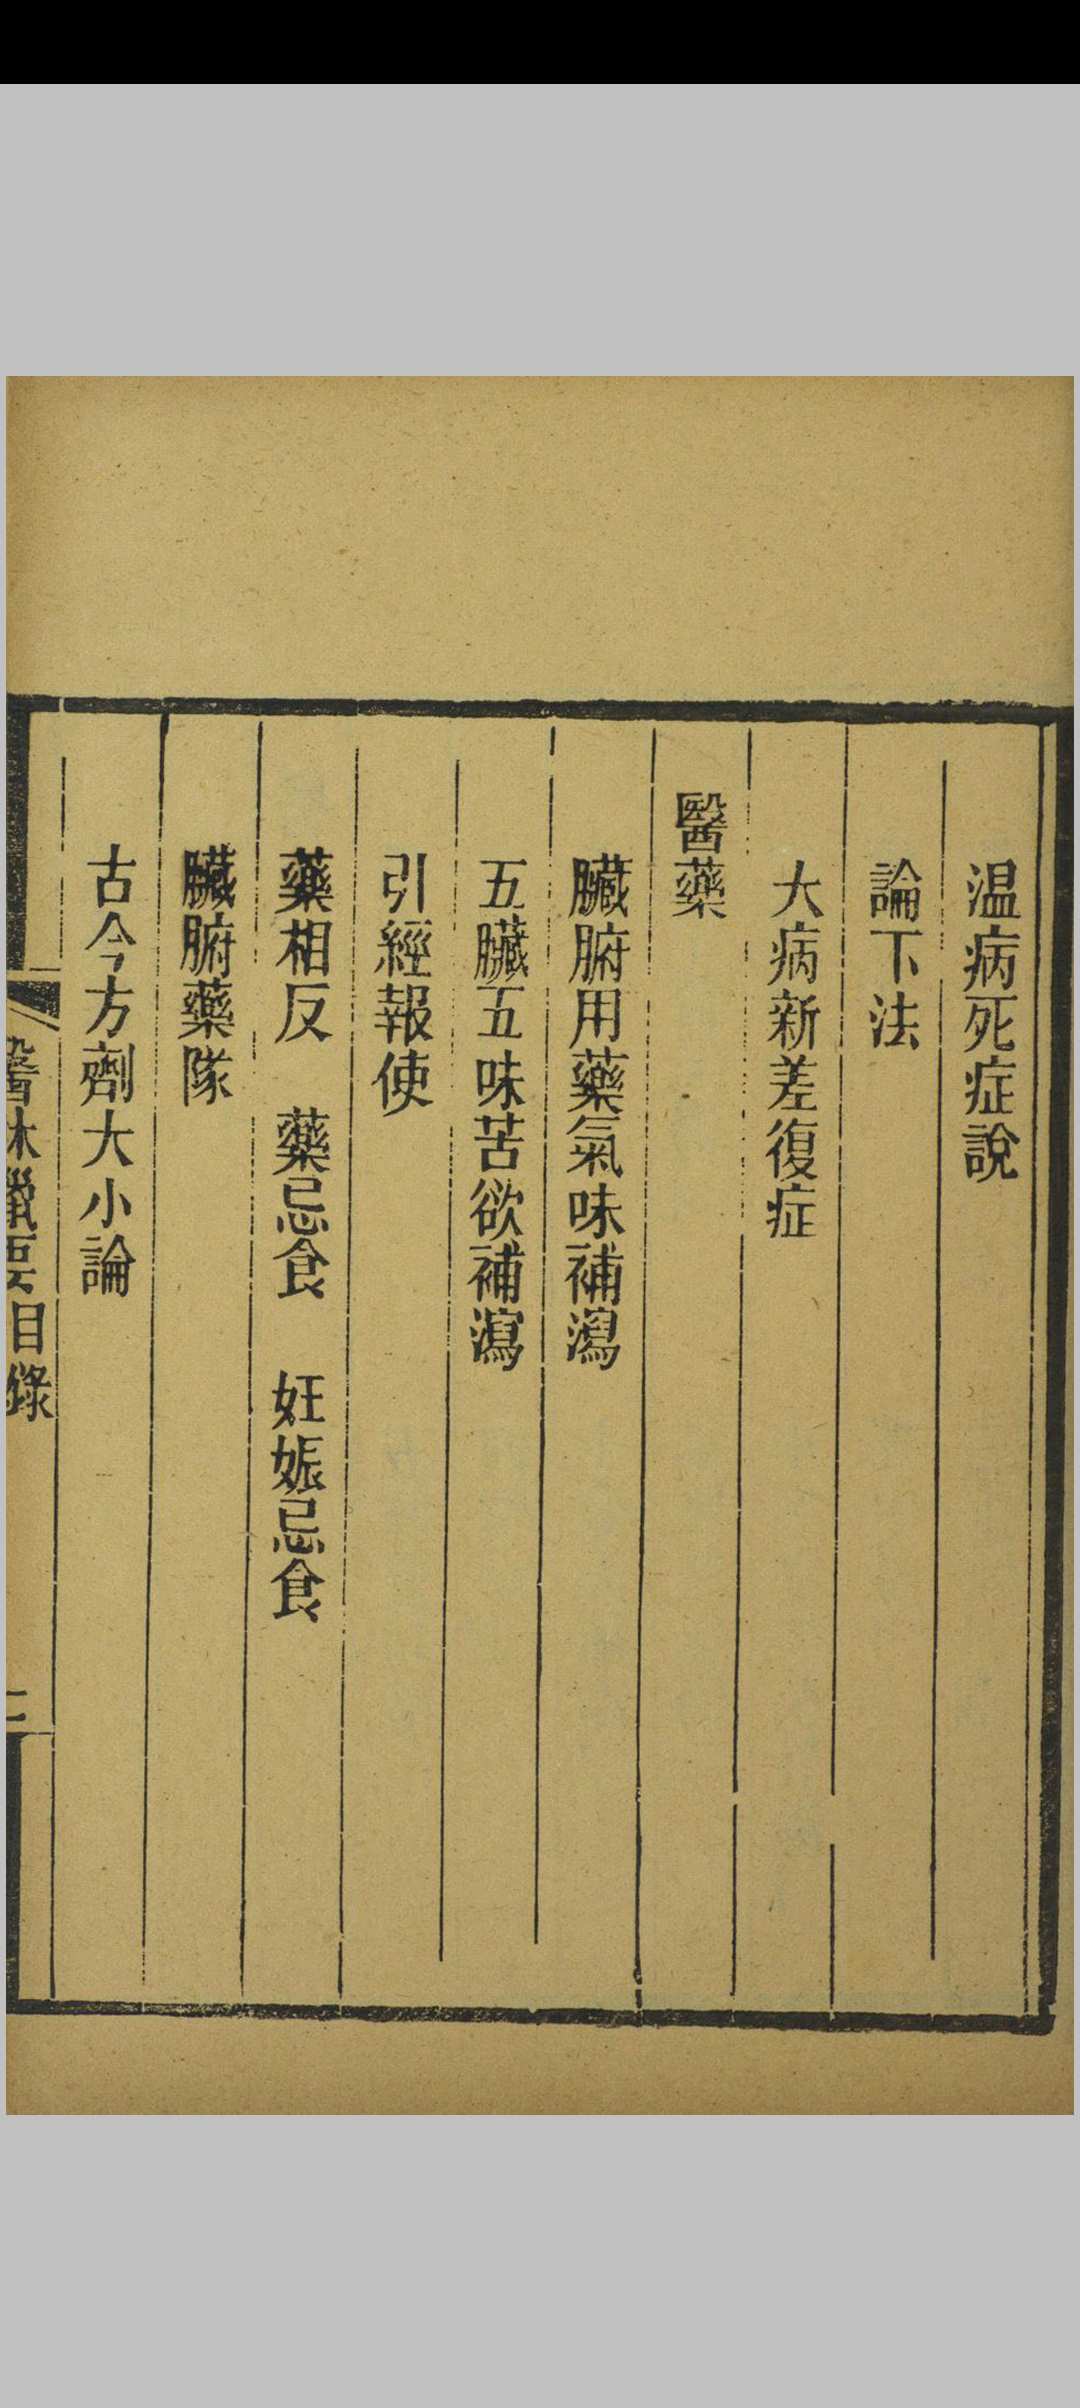 温病死症說
論下法
大病新差復症
醫藥
臟腑用藥氣味補瀉
五臟五味苦欲補瀉
引經報使
藥相反　藥忌食　妊娠忌食
臟腑藥隊
古今方劑大小論
目錄